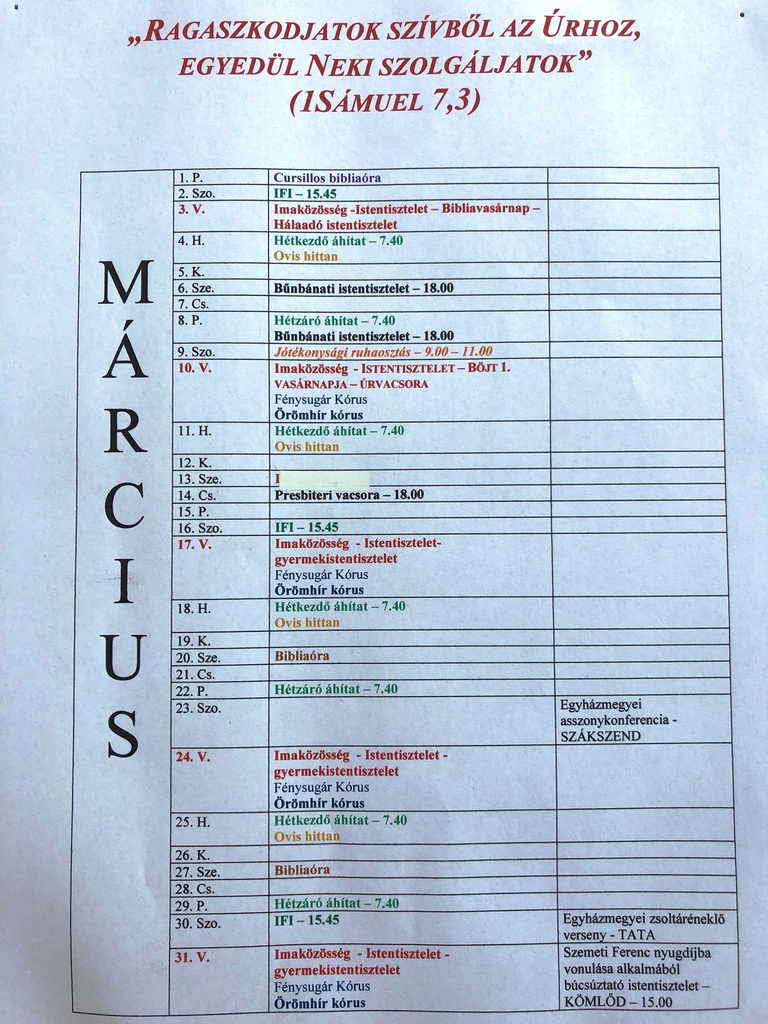 „RAGASZKODJATOK SZÍVBŐL AZ ÚRHOZ,
EGYEDÜL NEKI SZOLGÁLJATOK”
(1SÁMUEL 7,3)
MÁRCIUS
1. P. Cursillos bibliaóra
2. Szo. IFI – 15.45
3. V. Imaközösség -Istentisztelet – Bibliavasárnap –
Hálaadó istentisztelet
4. H. Hétkezdő áhítat – 7.40
Ovis hittan
5. K.
6. Sze. Bűnbánati istentisztelet – 18.00
7. Cs.
8. P. Hétzáró áhítat – 7.40
Bűnbánati istentisztelet – 18.00
9. Szo. Jótékonysági ruhaosztás – 9.00 – 11.00
10. V. Imaközösség - ISTENTISZTELET – BÖJT 1.
VASÁRNAPJA – ÚRVACSORA
Fénysugár Kórus
Örömhír kórus
11. H. Hétkezdő áhítat – 7.40
Ovis hittan
12. K.
13. Sze.
14. Cs. Presbiteri vacsora – 18.00
15. P.
16. Szo. IFI – 15.45
17. V. Imaközösség - Istentisztelet-
gyermekistentisztelet
Fénysugár Kórus
Örömhír kórus
18. H. Hétkezdő áhítat – 7.40
Ovis hittan
19. K.
20. Sze. Bibliaóra
21. Cs.
22. P. Hétzáró áhítat – 7.40
23. Szo. Egyházmegyei
asszonykonferencia -
SZÁKSZEND
24. V. Imaközösség - Istentisztelet -
gyermekistentisztelet
Fénysugár Kórus
Örömhír kórus
25. H. Hétkezdő áhítat – 7.40
Ovis hittan
26. K.
27. Sze. Bibliaóra
28. Cs.
29. P. Hétzáró áhítat – 7.40
30. Szo. IFI – 15.45 Egyházmegyei zsoltáréneklő
verseny - TATA
31. V. Imaközösség - Istentisztelet -
gyermekistentisztelet
Fénysugár Kórus
Örömhír kórus
Szemeti Ferenc nyugdíjba
vonulása alkalmából
búcsúztató istentisztelet –
KÖMLŐD – 15.00